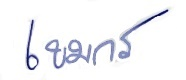 เขมกร